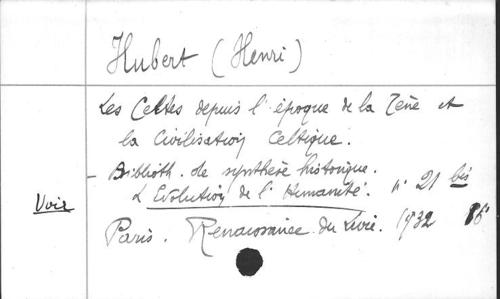 Hubert (Henri)
Les Celtes depuis l'époque de la Tène et
la Civilisation Celtique.
- Biblioth. de synthèse historique.
L'Evolution de l'Humanité. n° 21 bis
Voir
Paris. Renaissance du Livre. 1932 8°